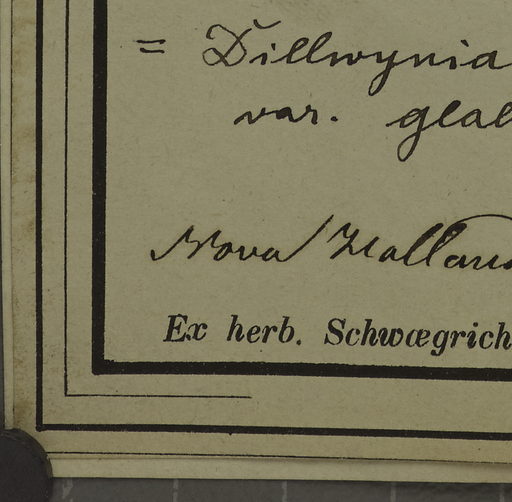 = Dillwynia
var. glab
Nova Holland
Ex herb. Schwægrich